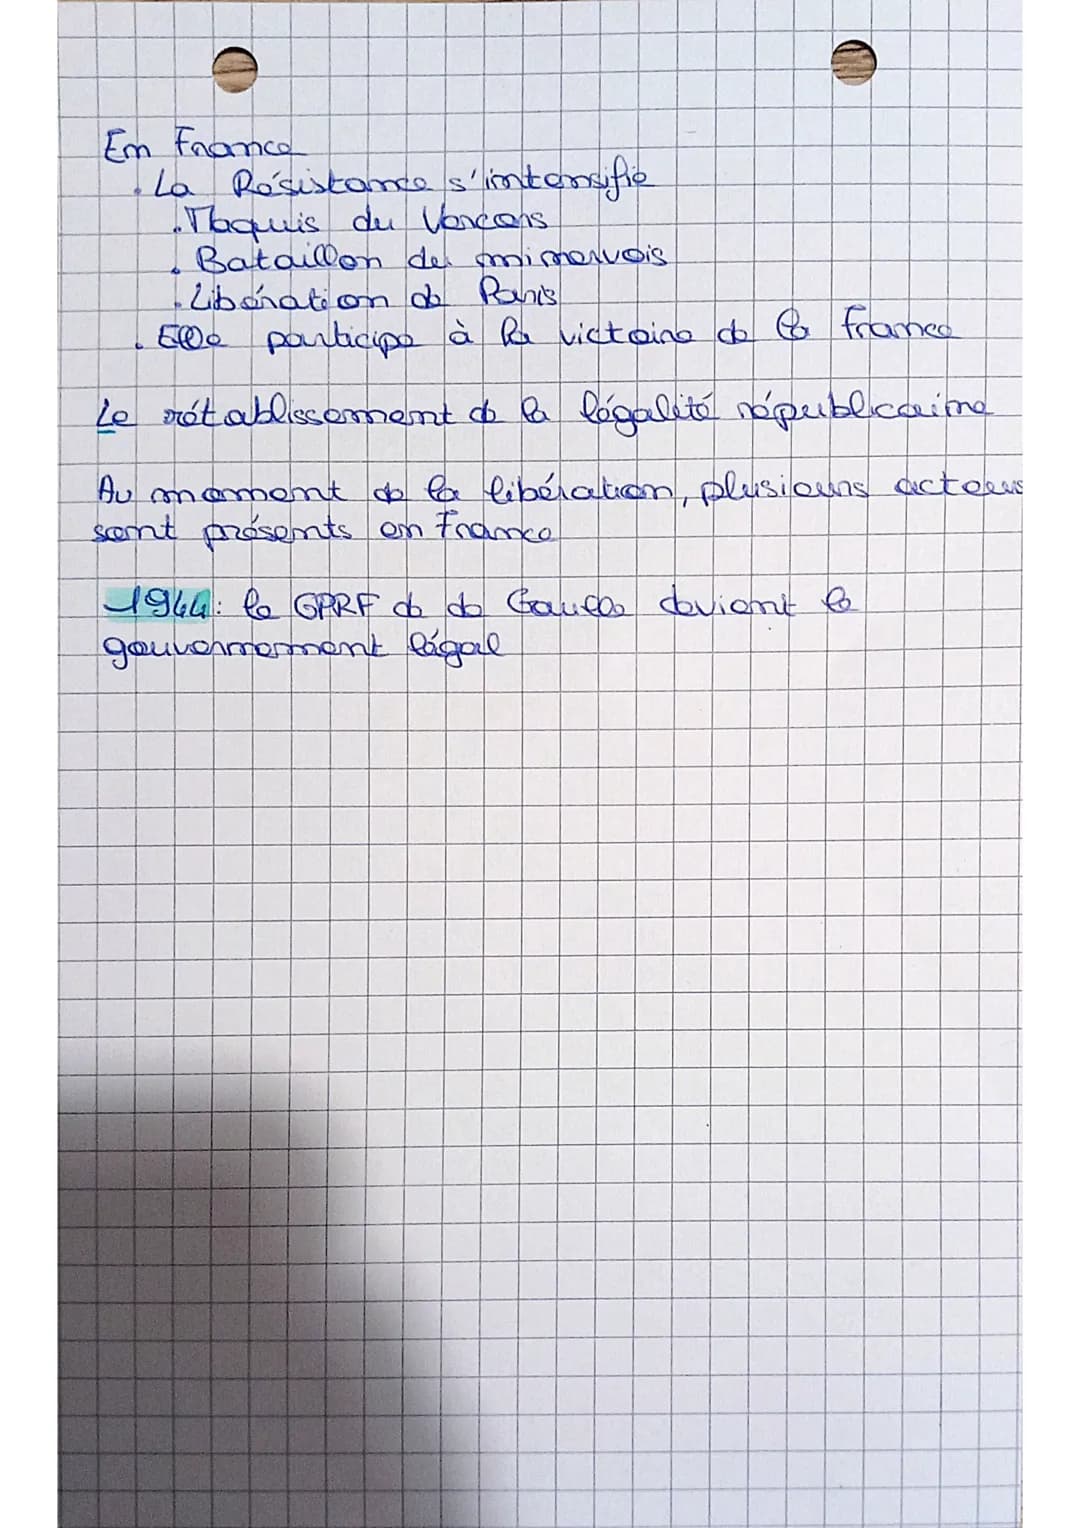 En France
. La Résistance s'intensifie
. Maquis du Vercors
. Bataillon de minervois
. Libération de Paris
. Elle participe à la victoire de la france
Le rétablissement de la légalité républicaine
Au moment de la libération, plusieurs acteurs
sont présents en France
1944: le GPRF de de Gaulle devient le
gouvernement légal